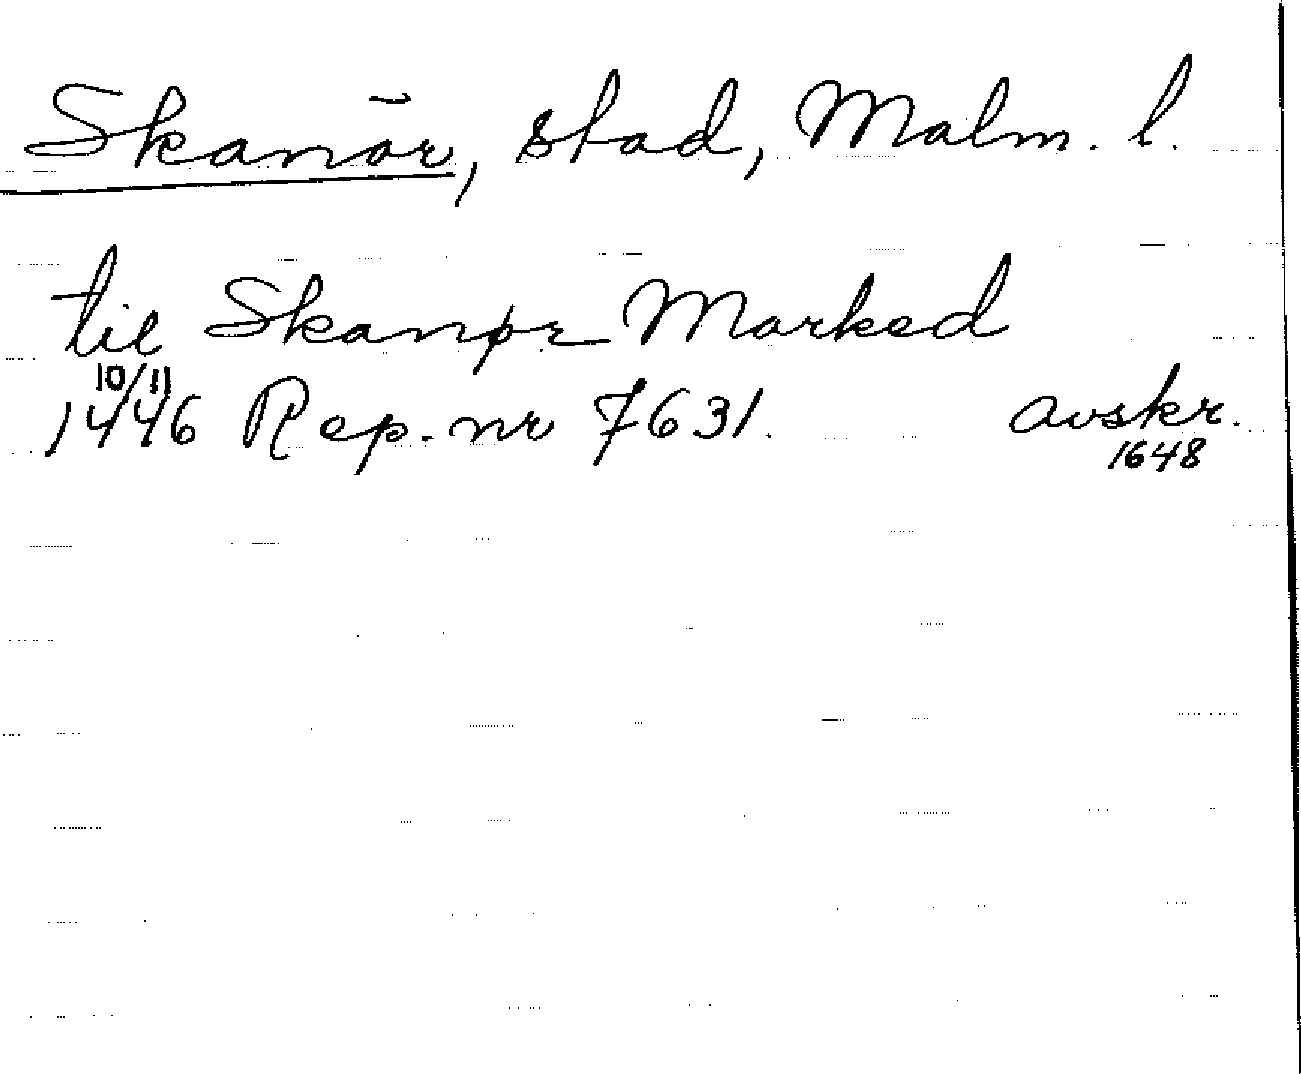 Skanör, stad, Malm. l.
til Skanør Marked
10/11
1446 Rep. nr 7631. avskr.
1648